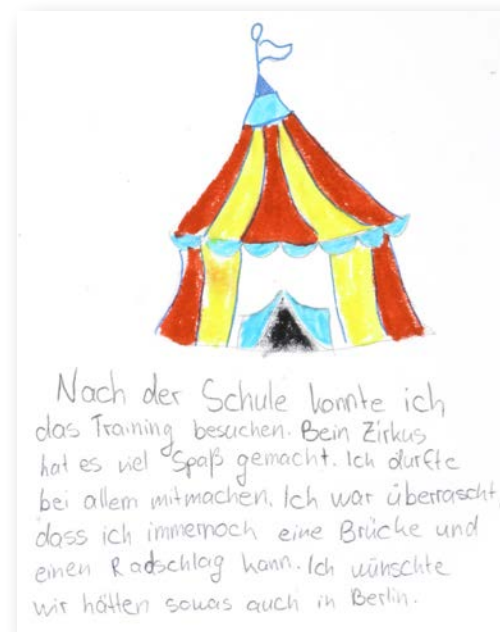 Nach der Schule konnte ich
das Training besuchen. Bein Zirkus
hat es viel Spaß gemacht. Ich durfte
bei allem mitmachen. Ich war überrascht,
dass ich immernoch eine Brücke und
einen Radschlag kann. Ich wünschte
wir hätten sowas auch in Berlin.